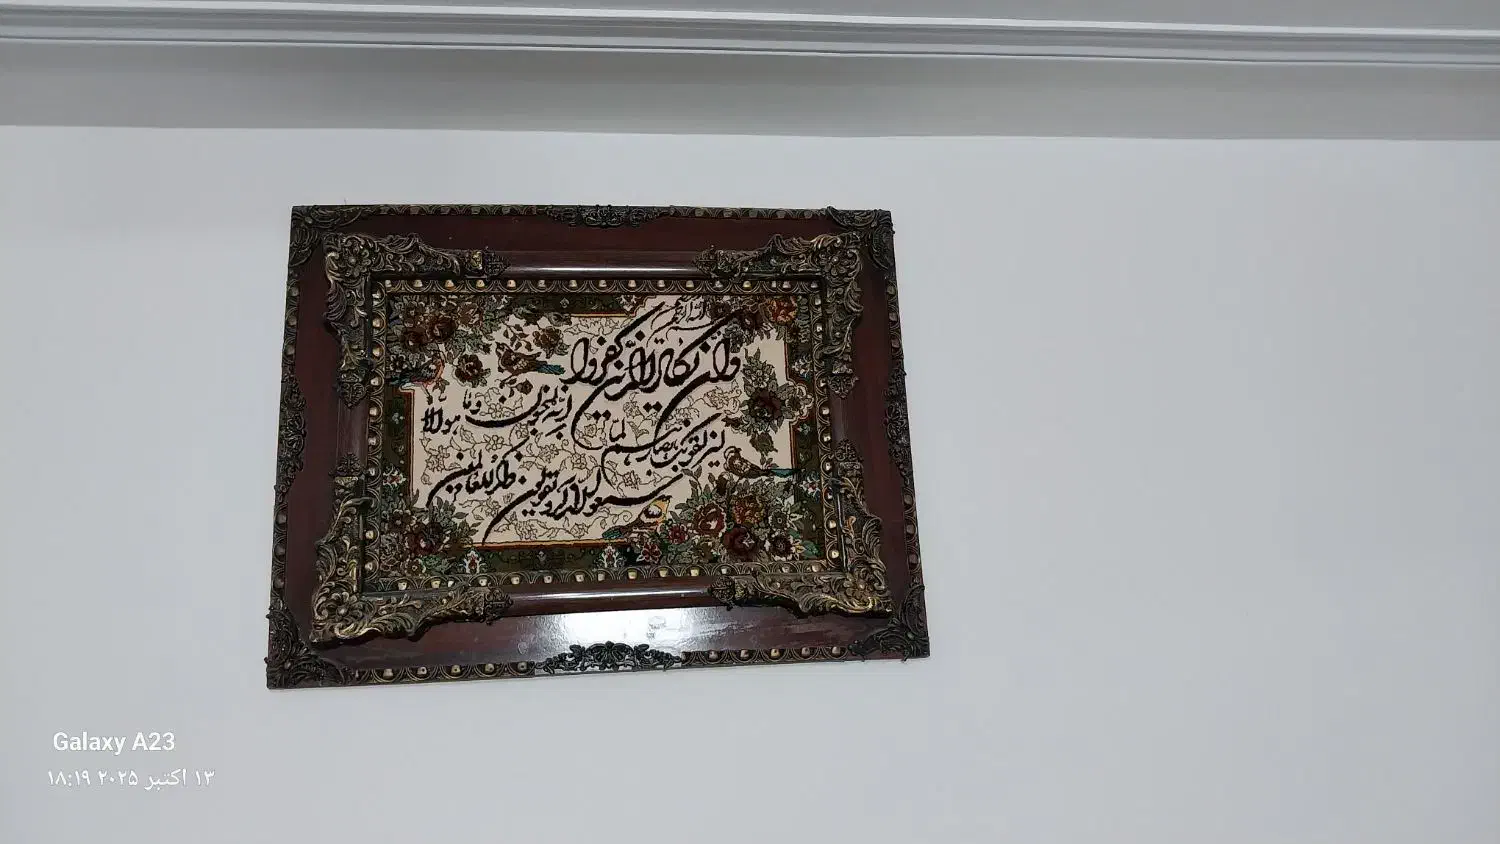 بسم الله الرحمن الرحیم
وان یکاد الذین کفروا
لیزلقونک بابصارهم لما
سمعوا الذکر و یقولون
انه لمجنون و ما هو الا
ذکر للعالمین
Galaxy A23
۱۳ اکتبر ۲۰۲۵ ۱۸:۱۹